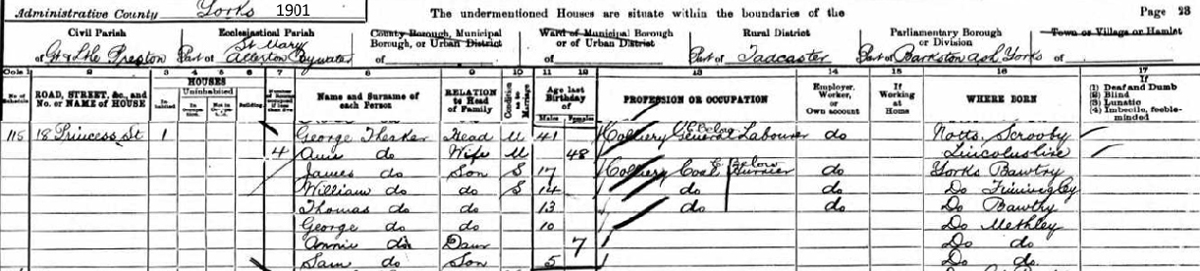 Administrative County Yorks 1901 The undermentioned Houses are situate within the boundaries of the Page 23
Civil Parish Ecclesiastical Parish County Borough, Municipal Borough, or Urban District Ward of Municipal Borough or of Urban District Rural District Parliamentary Borough or Division Town or Village or Hamlet
of Gt & Ltle Preston Part of St Mary Allerton Bywater of of Part of Tadcaster Part of Barkston Ash Yorks of
Cols 1 2 3 4 5 6 7 8 9 10 11 12 13 14 15 16 17
No. of Schedule ROAD, STREET, &c., and No. or NAME of HOUSE HOUSES In-habited Uninhabited Building Name and Surname of each Person RELATION to Head of Family Condition as to Marriage Age last Birthday of Males Females PROFESSION OR OCCUPATION Employer, Worker, or Own account If Working at Home WHERE BORN (1) Deaf and Dumb (2) Blind (3) Lunatic (4) Imbecile, feeble-minded
115 18 Princess St 1 George Thesker Head M 41 Colliery General Labourer do Notts, Scrooby
4 Ann do Wife M 48 Lincolnshire
James do Son S 17 Colliery Coal Hurrier below do Yorks Bawtry
William do do S 14 do do Do
Thomas do do 13 do do Do Bawtry
George do do 10 Do Methley
Annie do Daur 7 Do do
Sam do Son 5 Do do